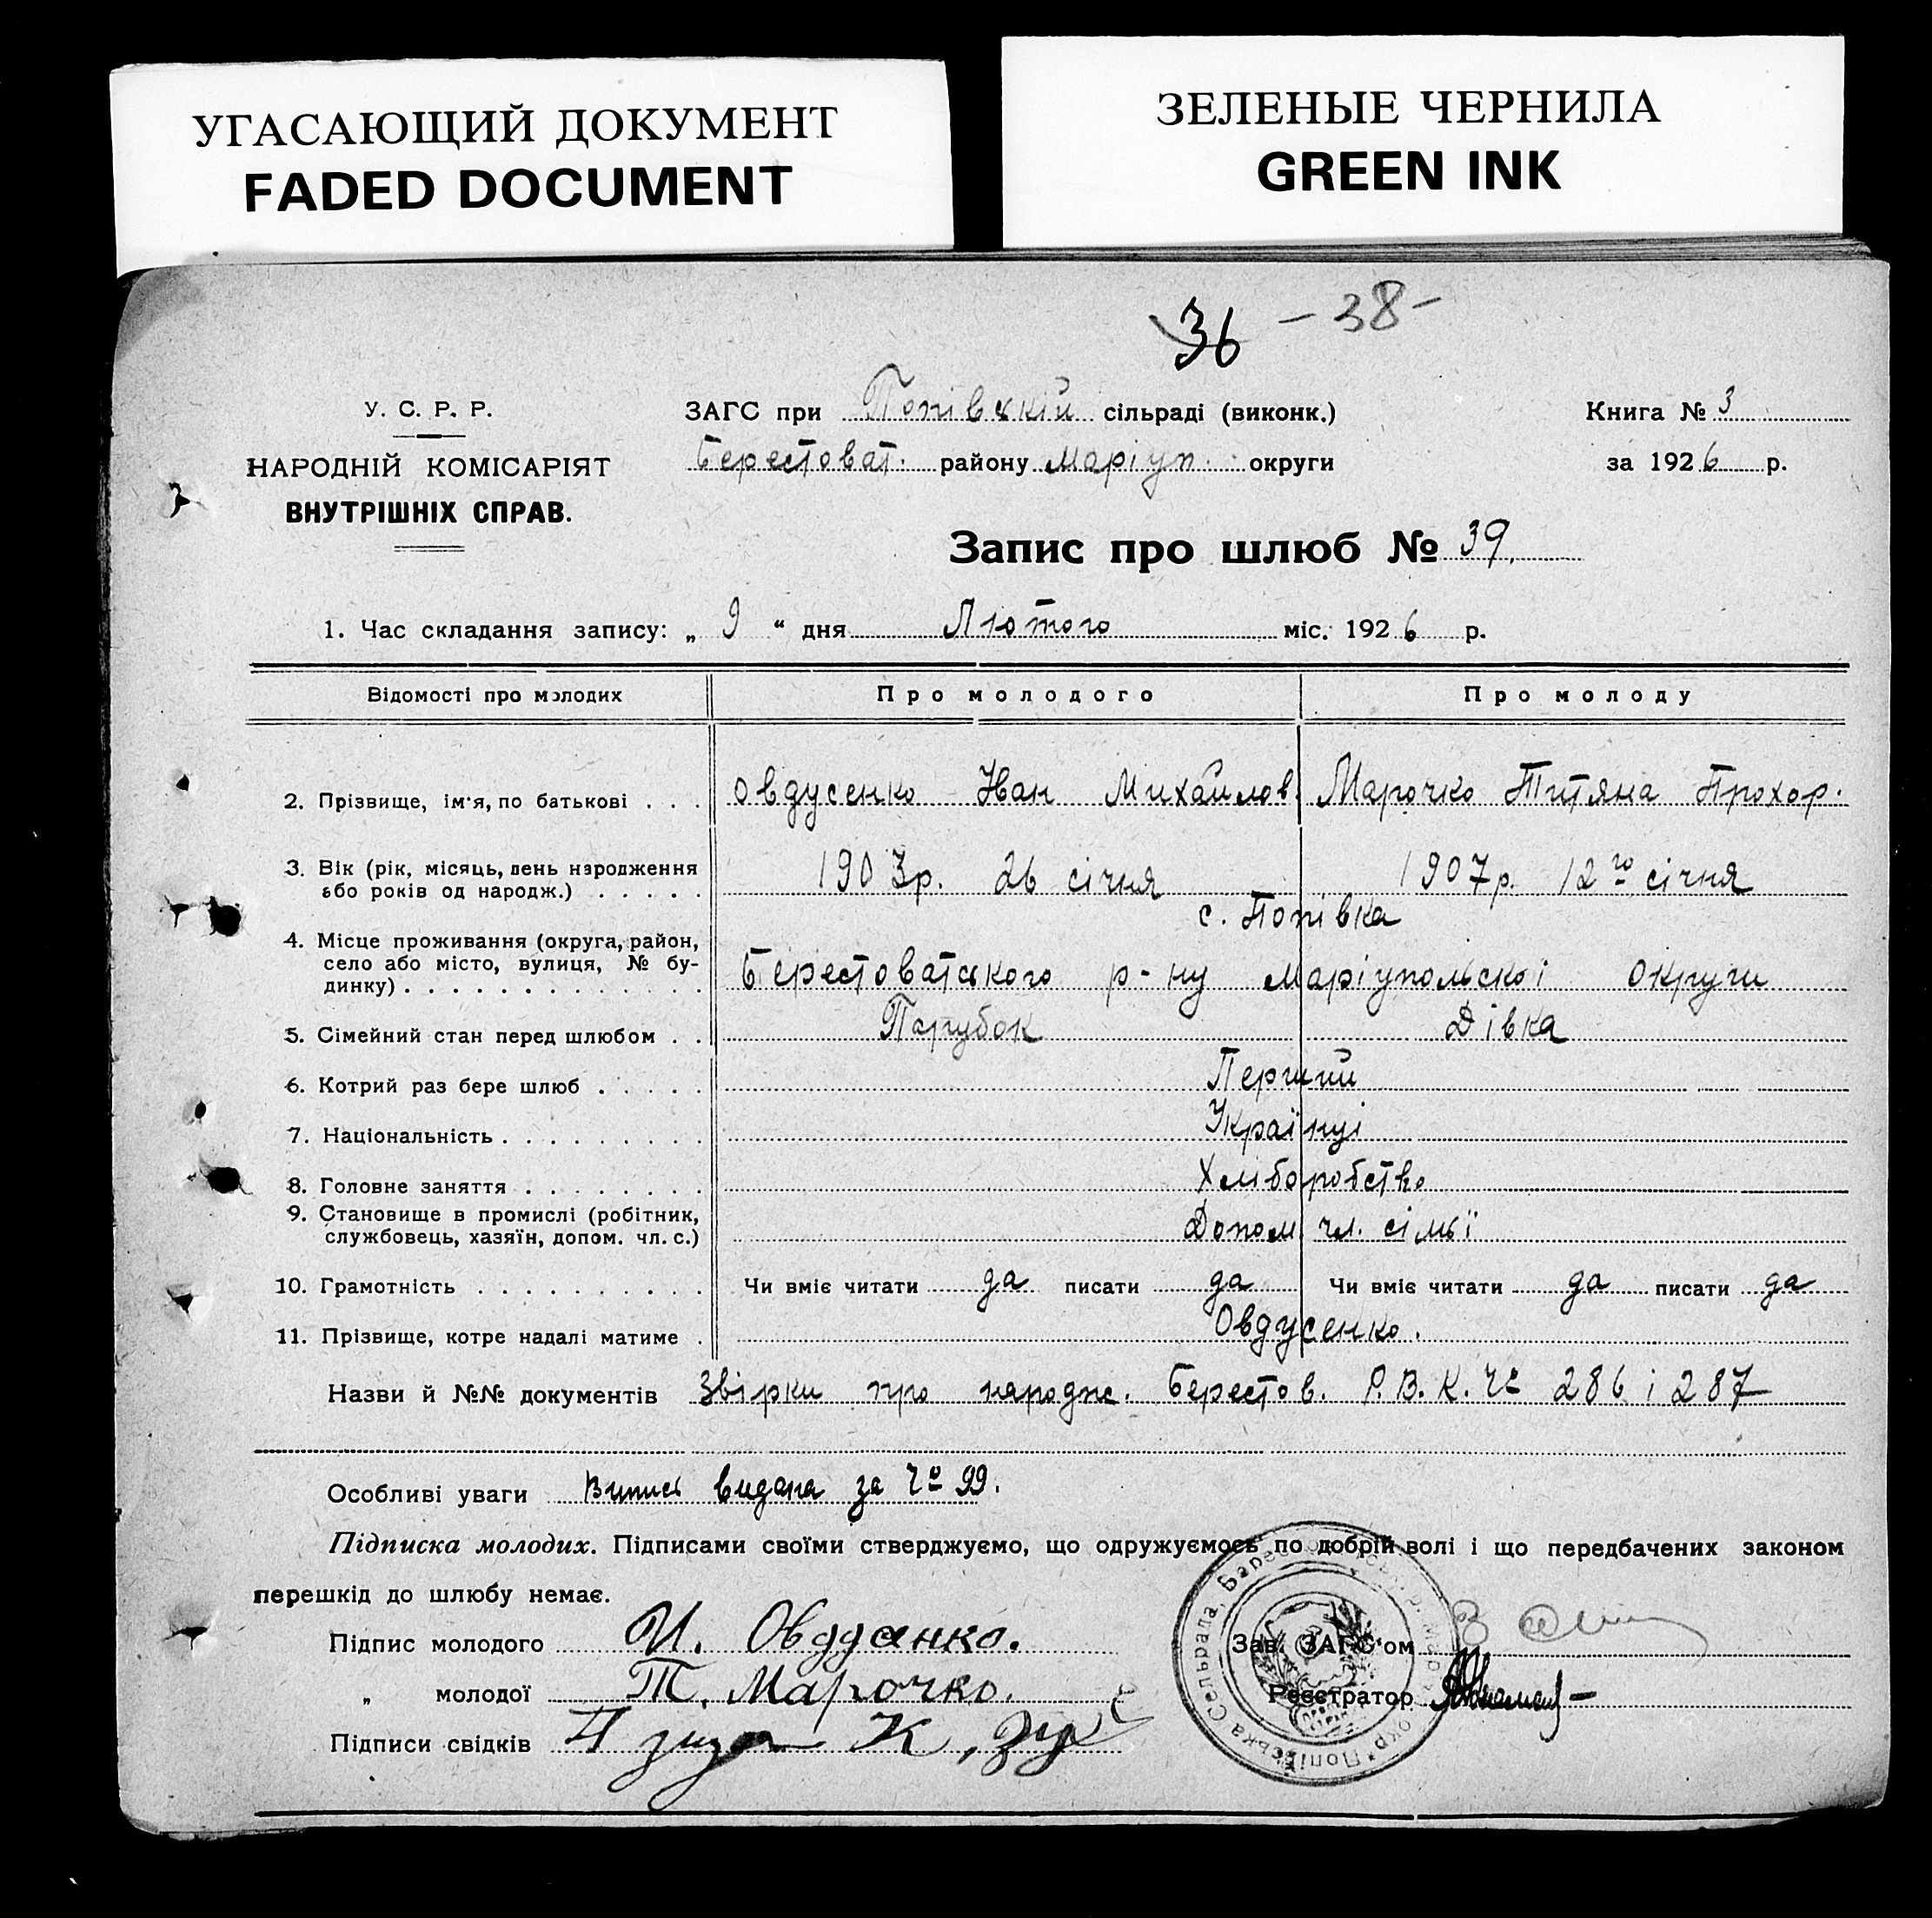 УГАСАЮЩИЙ ДОКУМЕНТ
FADED DOCUMENT
ЗЕЛЕНЫЕ ЧЕРНИЛА
GREEN INK
36 – 38 –
У. С. Р. Р.
НАРОДНІЙ КОМІСАРІЯТ
ВНУТРІШНІХ СПРАВ.
ЗАГС при Попівській сільраді (виконк.)
Берестоват. району Маріуп. округи
Книга № 3
за 1926 р.
Запис про шлюб № 39.
1. Час складання запису: „ 9 “ дня Лютого міс. 1926 р.
Відомості про молодих Про молодого Про молоду
2. Прізвище, ім'я, по батькові . . . Овдусенко Іван Михайлов. Марочко Титяна Прохор.
3. Вік (рік, місяць, день народження
або років од народж.) . . . . . 1903р. 26 січня 1907р. 12го січня
с. Попівка
4. Місце проживання (округа, район,
село або місто, вулиця, № бу-
динку) . . . . . . . . . . . . . Берестоватського р-ну Маріупольскоі округи
5. Сімейний стан перед шлюбом . . Парубок Дівка
6. Котрий раз бере шлюб . . . . . Перший
7. Національність . . . . . . . . . Українці
8. Головне заняття . . . . . . . . Хліборобство
9. Становище в промислі (робітник,
службовець, хазяїн, допом. чл. с.) Допом. чл. сімьї
10. Грамотність . . . . . . . . . . Чи вміє читати да писати да Чи вміє читати да писати да
11. Прізвище, котре надалі матиме . Овдусенко.
Назви й №№ документів Звірки про народж. Берестов. Р.В.К. Чо 286 і 287
Особливі уваги Випись видана за Чо 99.
Підписка молодих. Підписами своїми стверджуємо, що одружуємось по добрій волі і що передбачених законом
перешкід до шлюбу немає.
Підпис молодого И. Овдусенко.
„ молодої Т. Марочко.
Підписи свідків
Зав. ЗАГС'ом
Реєстратор
Попівська Сельрада, Берестов